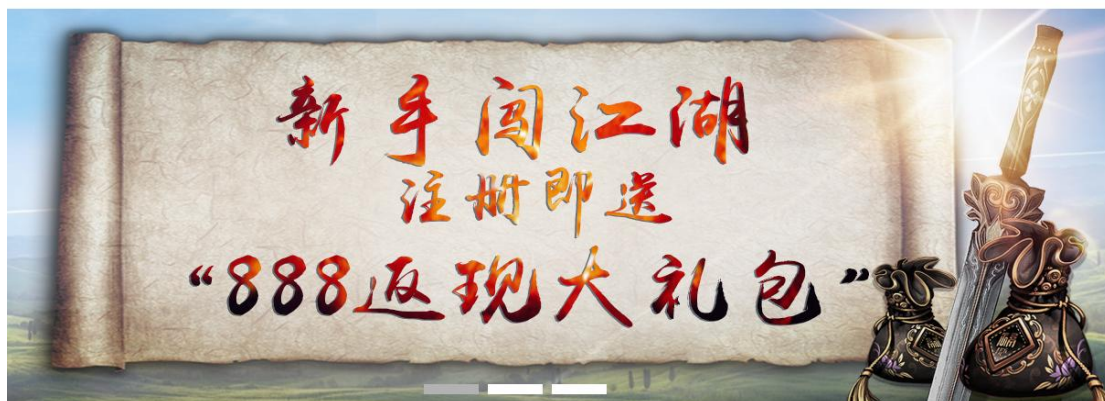 新手闯江湖
注册即送
“888返现大礼包”